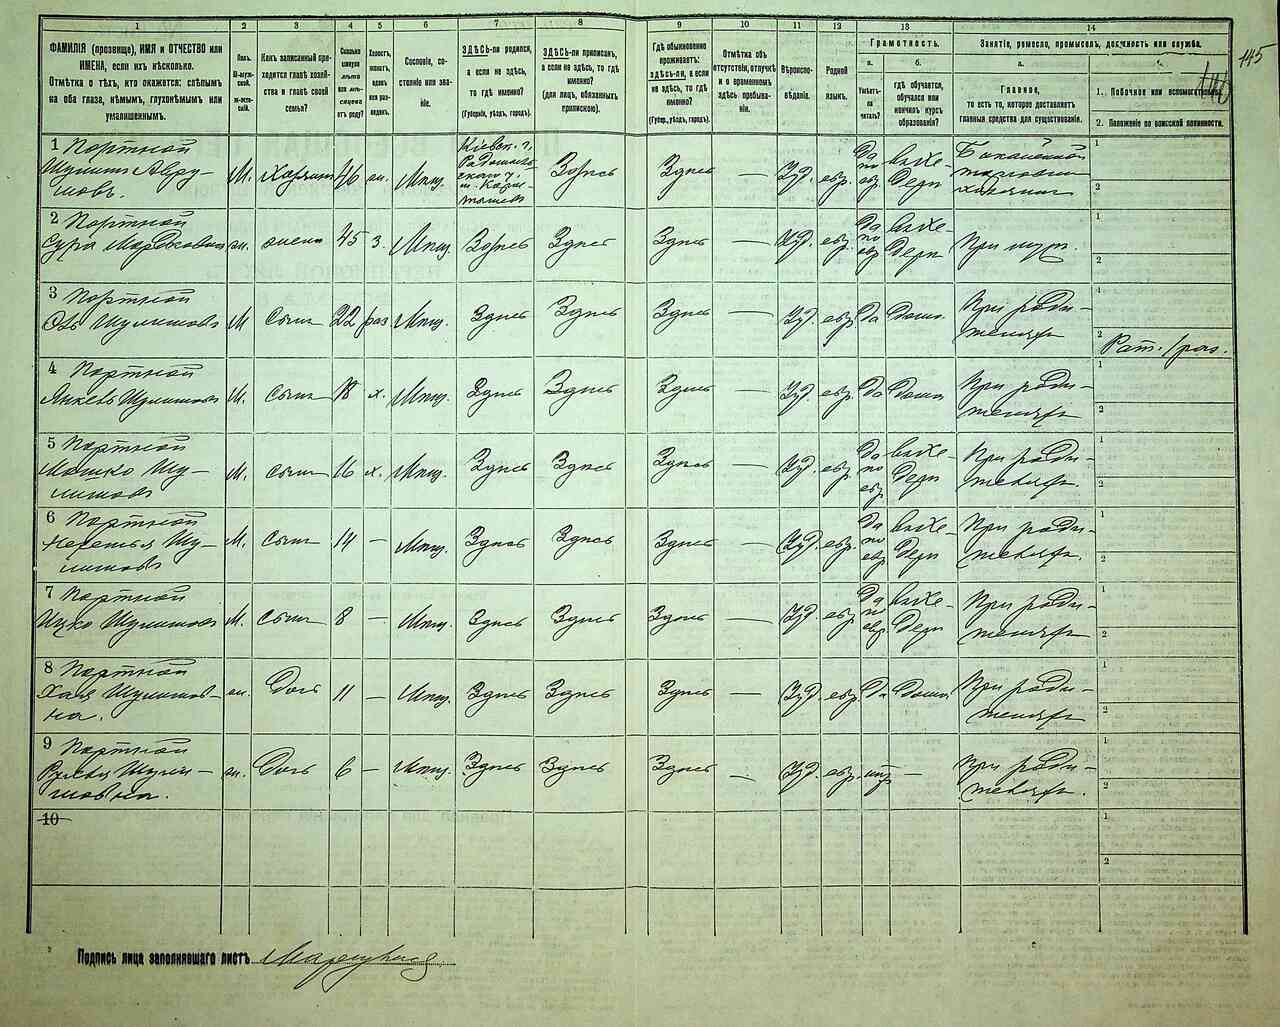 145
1 2 3 4 5 6 7 8 9 10 11 12 13 14
ФАМИЛІЯ (прозвище), ИМЯ и ОТЧЕСТВО или
ИМЕНА, если ихъ нѣсколько.
Отмѣтка о тѣхъ, кто окажется: слѣпымъ
на оба глаза, нѣмымъ, глухонѣмымъ или
умалишеннымъ.
Полъ.
М-муж-
ской.
ж-жен-
скій.
Какъ записанный при-
ходится главѣ хозяй-
ства и главѣ своей
семьи?
Сколько
минуло
лѣтъ
или мѣ-
сяцевъ
отъ роду?
Холостъ,
женатъ,
вдовъ
или раз-
веденъ.
Сословіе, со-
стояніе или зва-
ніе.
ЗДѢСЬ-ли родился,
а если не здѣсь,
то гдѣ именно?
(Губернія, уѣздъ, городъ).
ЗДѢСЬ-ли приписанъ,
а если не здѣсь, то гдѣ
именно?
(для лицъ, обязанныхъ
припискою).
Гдѣ обыкновенно
проживаетъ:
здѣсь-ли, а если
не здѣсь, то гдѣ
именно?
(Губер., уѣздъ, городъ).
Отмѣтка объ
отсутствіи, отлучкѣ
и о временномъ
здѣсь пребыва-
ніи.
Вѣроиспо-
вѣданіе.
Родной
языкъ.
Грамотность.
а.
Умѣетъ-
ли
читать?
б.
гдѣ обучается,
обучался или
кончилъ курсъ
образованія?
Занятіе, ремесло, промыселъ, должность или служба.
а.
Главное,
то есть то, которое доставляетъ
главныя средства для существованія.
1. Побочное или вспомогательное.
2. Положеніе по воинской повинности.
1 Портной
Шулимъ Авру-
мовъ.
М. Хозяинъ 46 жен. Мѣщ.
Кіевск. г.
Радомысль-
скаго у.
м. Коро-
стышевъ
Здѣсь Здѣсь Іуд. евр.
Да
по
евр.
въ хе-
дерѣ
2 Портной
Сура Мордковна ж. жена 45 з. Мѣщ. Здѣсь Здѣсь Здѣсь — Іуд. евр.
Да
по
евр.
въ хе-
дерѣ
При муж.
3 Портной
Шулимовъ М. сынъ 22 раз Мѣщ. Здѣсь Здѣсь Здѣсь — Іуд. евр. Да Дома
При роди-
теляхъ
Рат. /раз.
4 Портной
Янкель Шулимовъ М. сынъ 18 х. Мѣщ. Здѣсь Здѣсь Здѣсь — Іуд. евр. Да Дома
При роди-
теляхъ
5 Портной
Мошко Шу-
лимовъ
М. сынъ 16 х. Мѣщ. Здѣсь Здѣсь Здѣсь — Іуд. евр.
Да
по
евр.
въ хе-
дерѣ
При роди-
теляхъ.
6 Портной
Шу-
лимовъ
М. сынъ 14 — Мѣщ. Здѣсь Здѣсь Здѣсь — Іуд. евр.
Да
по
евр.
въ хе-
дерѣ
При роди-
теляхъ.
7 Портной
Ицко Шулимовъ М. сынъ 8 — Мѣщ. Здѣсь Здѣсь Здѣсь — Іуд. евр.
Да
по
евр.
въ хе-
дерѣ
При роди-
теляхъ
8 Портной
Хая Шулимов-
на.
ж. Дочь 11 — Мѣщ. Здѣсь Здѣсь Здѣсь — Іуд. евр. Да Дома
При роди-
теляхъ
9 Портной
Шули-
мовна.
ж. Дочь 6 — Мѣщ. Здѣсь Здѣсь Здѣсь — Іуд. евр. нѣтъ —
При роди-
теляхъ.
10
Подпись лица заполнявшаго листъ